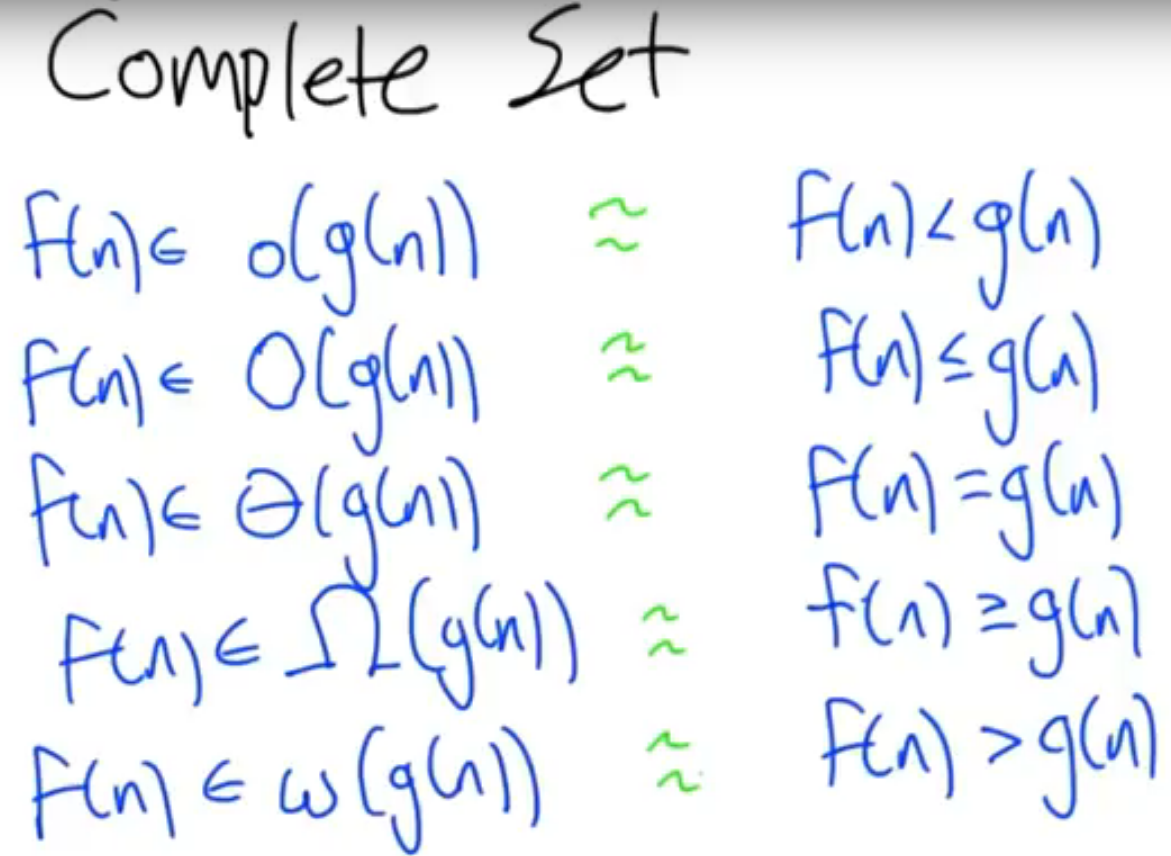 Complete Set
f(n) ∈ o(g(n)) ≈ f(n) < g(n)
f(n) ∈ O(g(n)) ≈ f(n) ≤ g(n)
f(n) ∈ Θ(g(n)) ≈ f(n) = g(n)
f(n) ∈ Ω(g(n)) ≈ f(n) ≥ g(n)
f(n) ∈ ω(g(n)) ≈ f(n) > g(n)